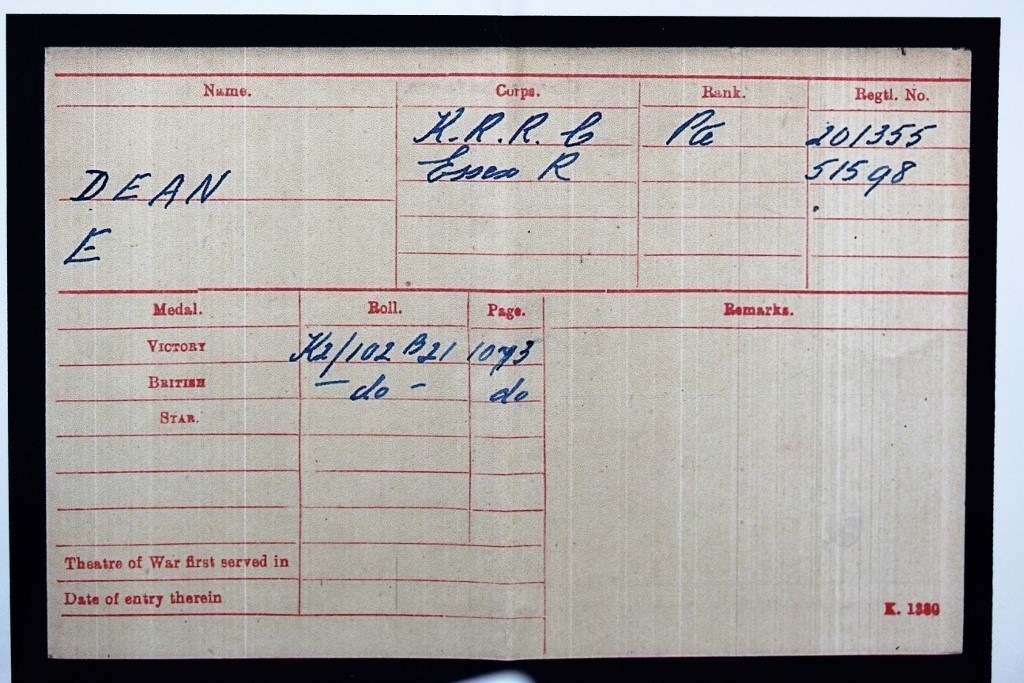 Name. Corps. Rank. Regtl. No.
K.R.R.C Pte 201355
Essex R 51598
DEAN
E
Medal. Roll. Page. Remarks.
VICTORY K2/102 B21 1093
BRITISH — do — do
STAR.
Theatre of War first served in
Date of entry therein
K. 1380